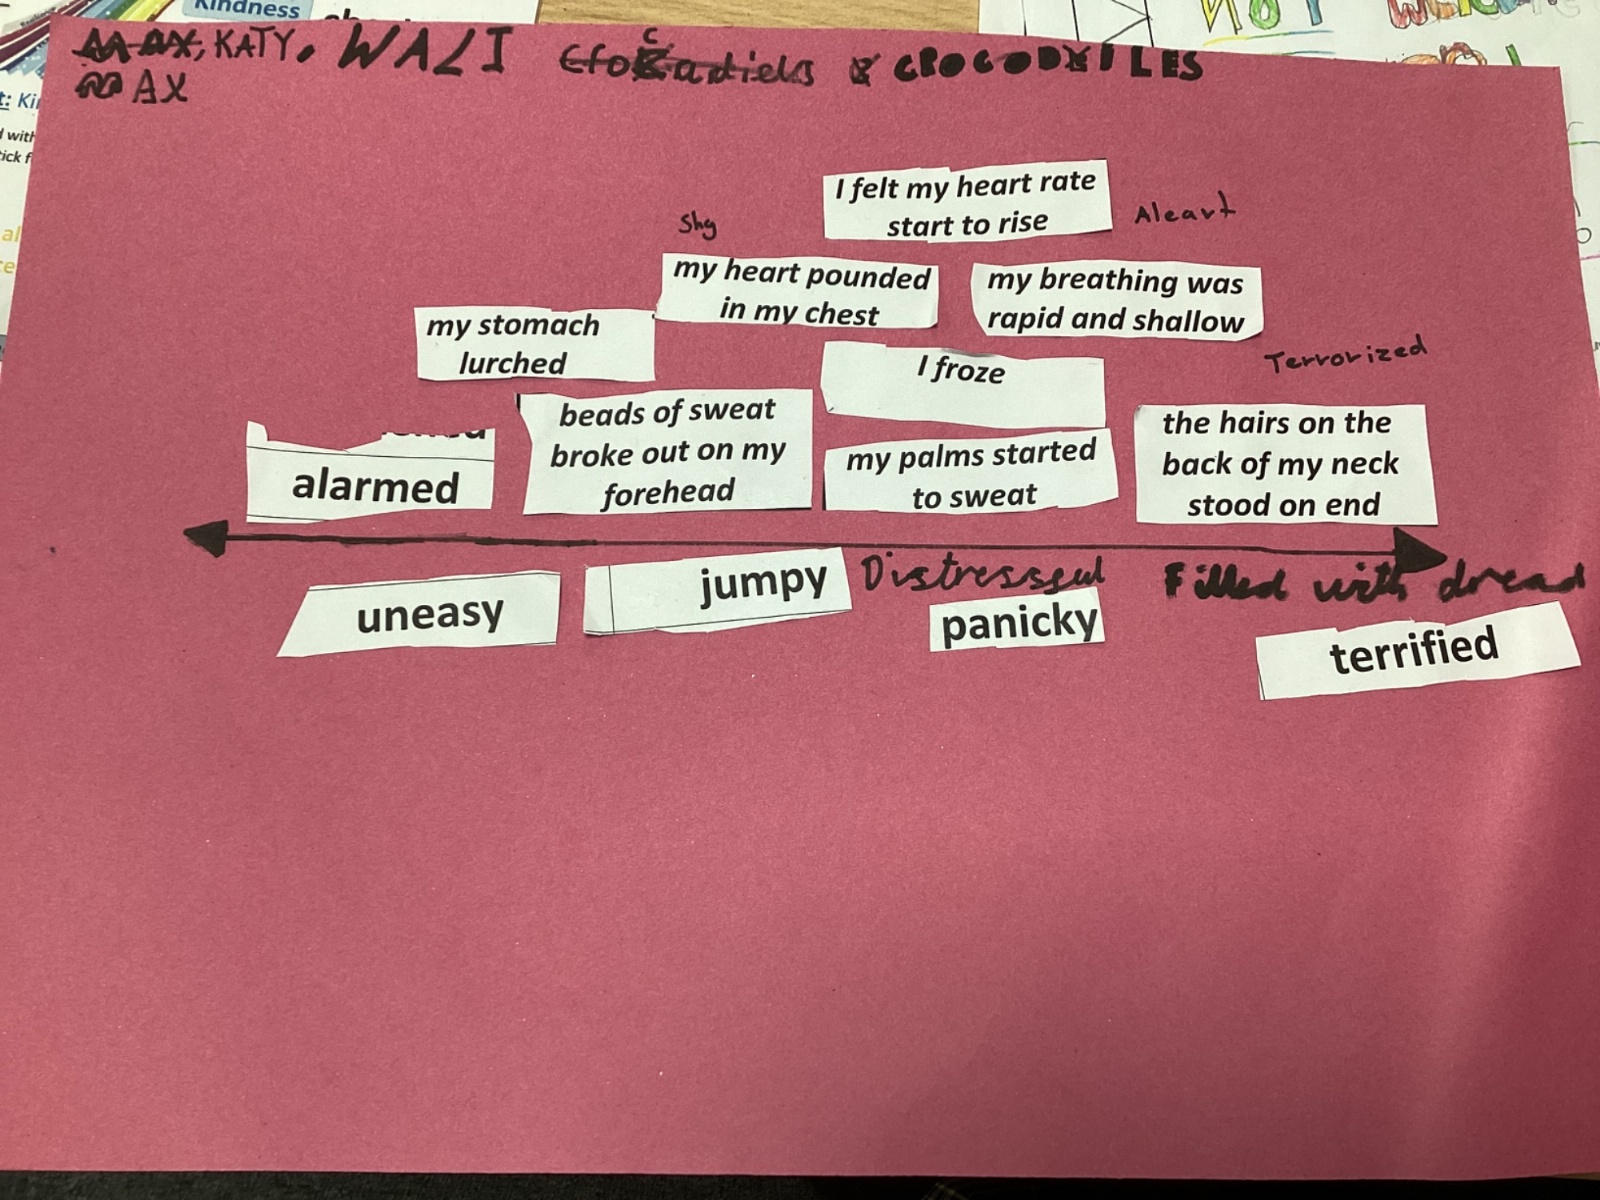 Kindness
KATY. WALI CROCODILES
MAX
I felt my heart rate
start to rise
Shy
Aleart
my heart pounded
in my chest
my breathing was
rapid and shallow
my stomach
lurched
I froze
Terrorized
beads of sweat
broke out on my
forehead
my palms started
to sweat
the hairs on the
back of my neck
stood on end
alarmed
uneasy
jumpy
Distressful
panicky
Filled with dread
terrified